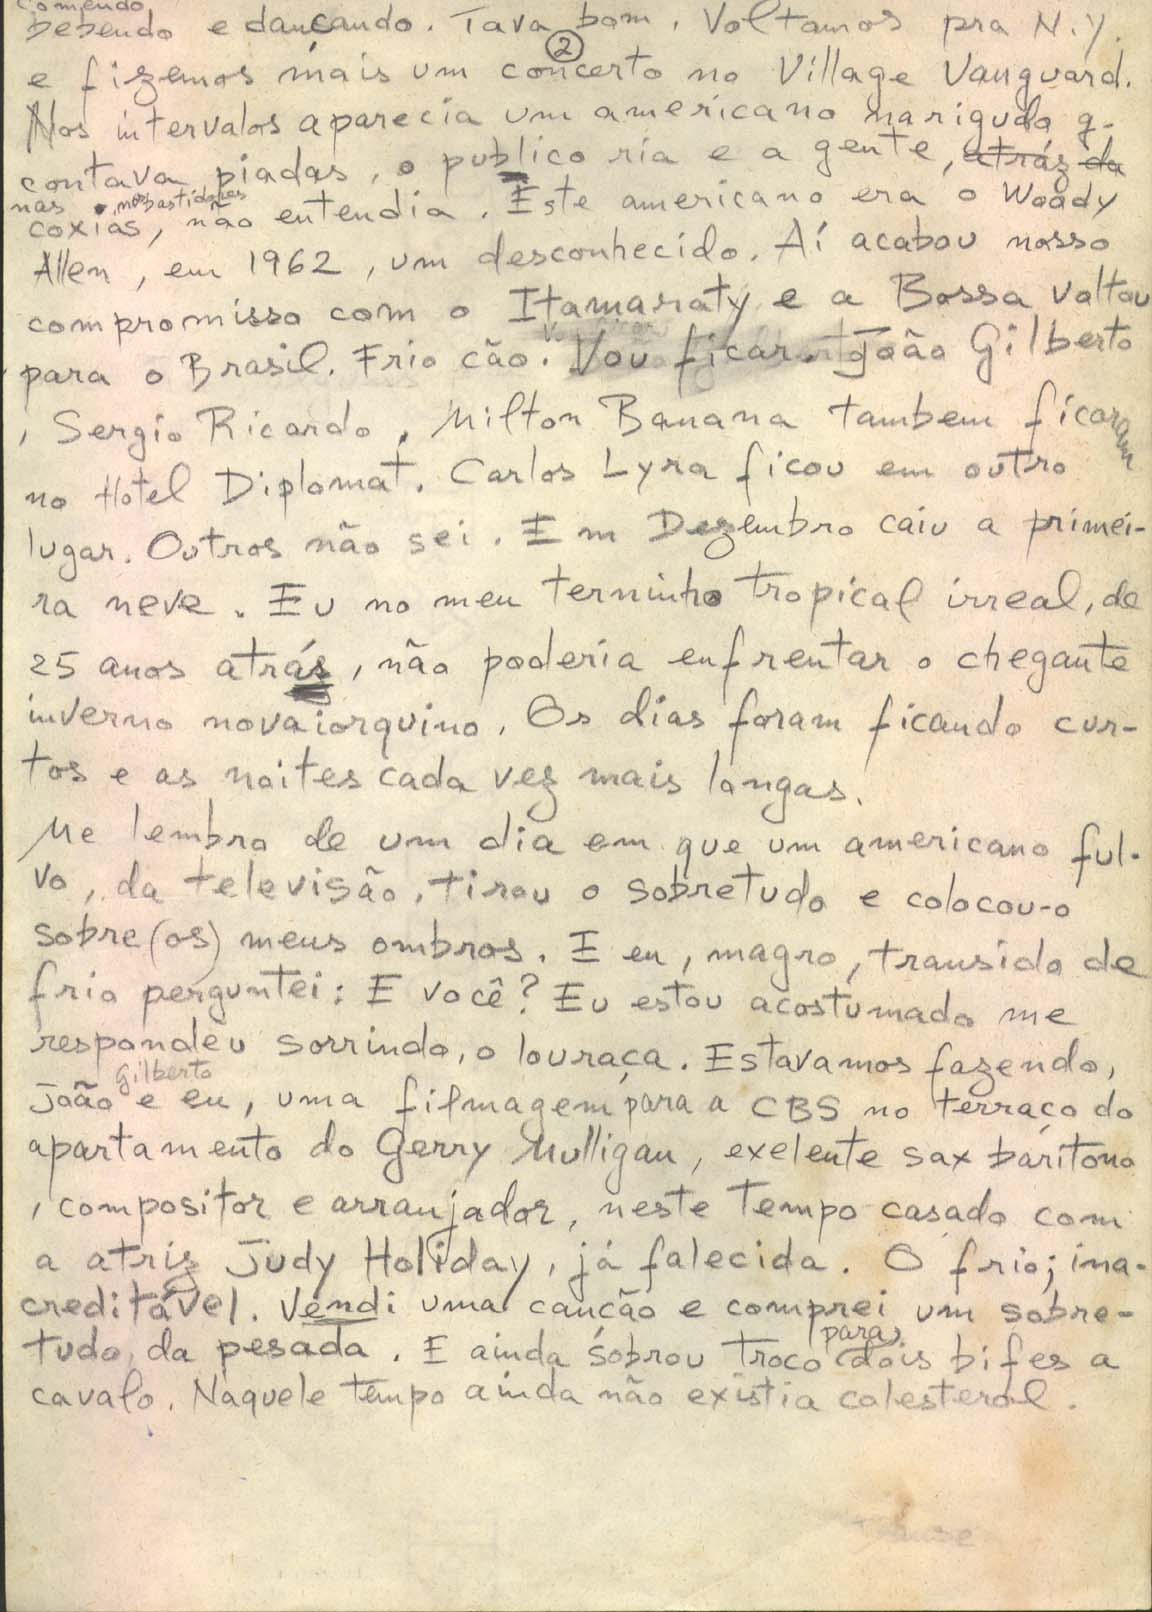 comendo
bebendo e dançando. Tava bom. Voltamos pra N.Y.
2
e fizemos mais um concerto no Village Vanguard.
Nos intervalos aparecia um americano narigudo q.
contava piadas, o publico ria e a gente, atrás da
nas nos bastidores
coxias, não entendia. Este americano era o Woody
Allen, em 1962, um desconhecido. Aí acabou nosso
compromisso com o Itamaraty e a Bossa voltou
para o Brasil. Frio cão. Vou ficar. João Gilberto
, Sergio Ricardo, Milton Banana tambem ficaram
no Hotel Diplomat. Carlos Lyra ficou em outro
lugar. Outros não sei. Em Dezembro caiu a primei-
ra neve. Eu no meu terninho tropical irreal, de
25 anos atrás, não poderia enfrentar o chegante
inverno novaiorquino. Os dias foram ficando cur-
tos e as noites cada vez mais longas.
Me lembro de um dia em que um americano ful-
vo, da televisão, tirou o sobretudo e colocou-o
sobre (os) meus ombros. E eu, magro, transido de
frio perguntei: E você? Eu estou acostumado me
respondeu sorrindo, o louraça. Estavamos fazendo,
Gilberto
João e eu, uma filmagem para a CBS no terraço do
apartamento do Gerry Mulligan, exelente sax barítono
, compositor e arranjador, neste tempo casado com
a atriz Judy Holiday, já falecida. O frio; ina-
creditável. Vendi uma canção e comprei um sobre-
tudo da pesada. E ainda sobrou troco (para) dois bifes a
cavalo. Naquele tempo ainda não existia colesterol.